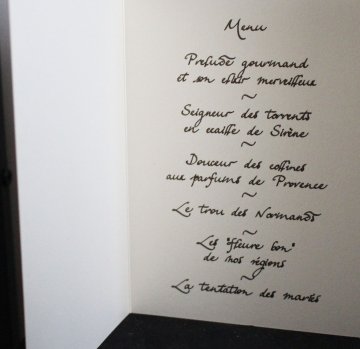 Menu
Prélude gourmand
et son elixir merveilleux
~
Seigneur des torrents
en écaille de Sirène
~
Douceur des collines
aux parfums de Provence
~
Le trou des Normands
~
Les "fleure bon"
de nos régions
~
La tentation des mariés